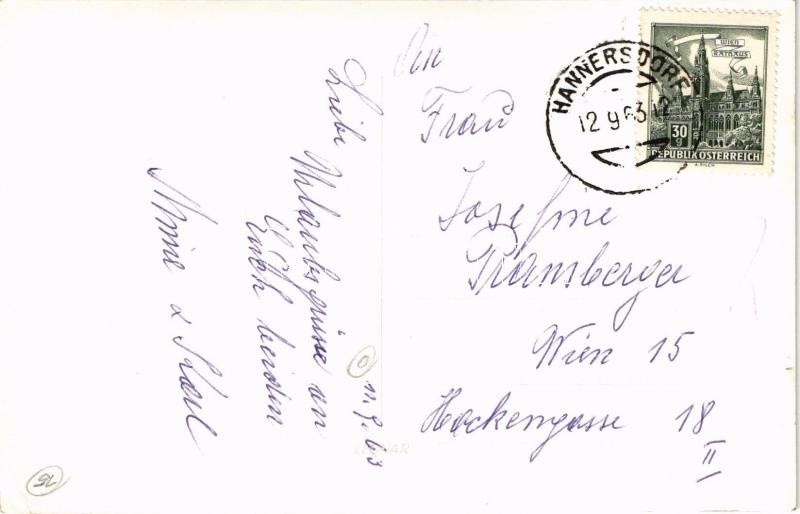 An
Frau
Josefine
Pramberger
Wien 15
Hackengasse 18
II
11.9.63
Liebe Urlaubsgrüsse an
Euch beiden
Mina & Karl
HANNERSDORF
12 9 63 12
WIEN
RATHAUS
30
g
REPUBLIK ÖSTERREICH